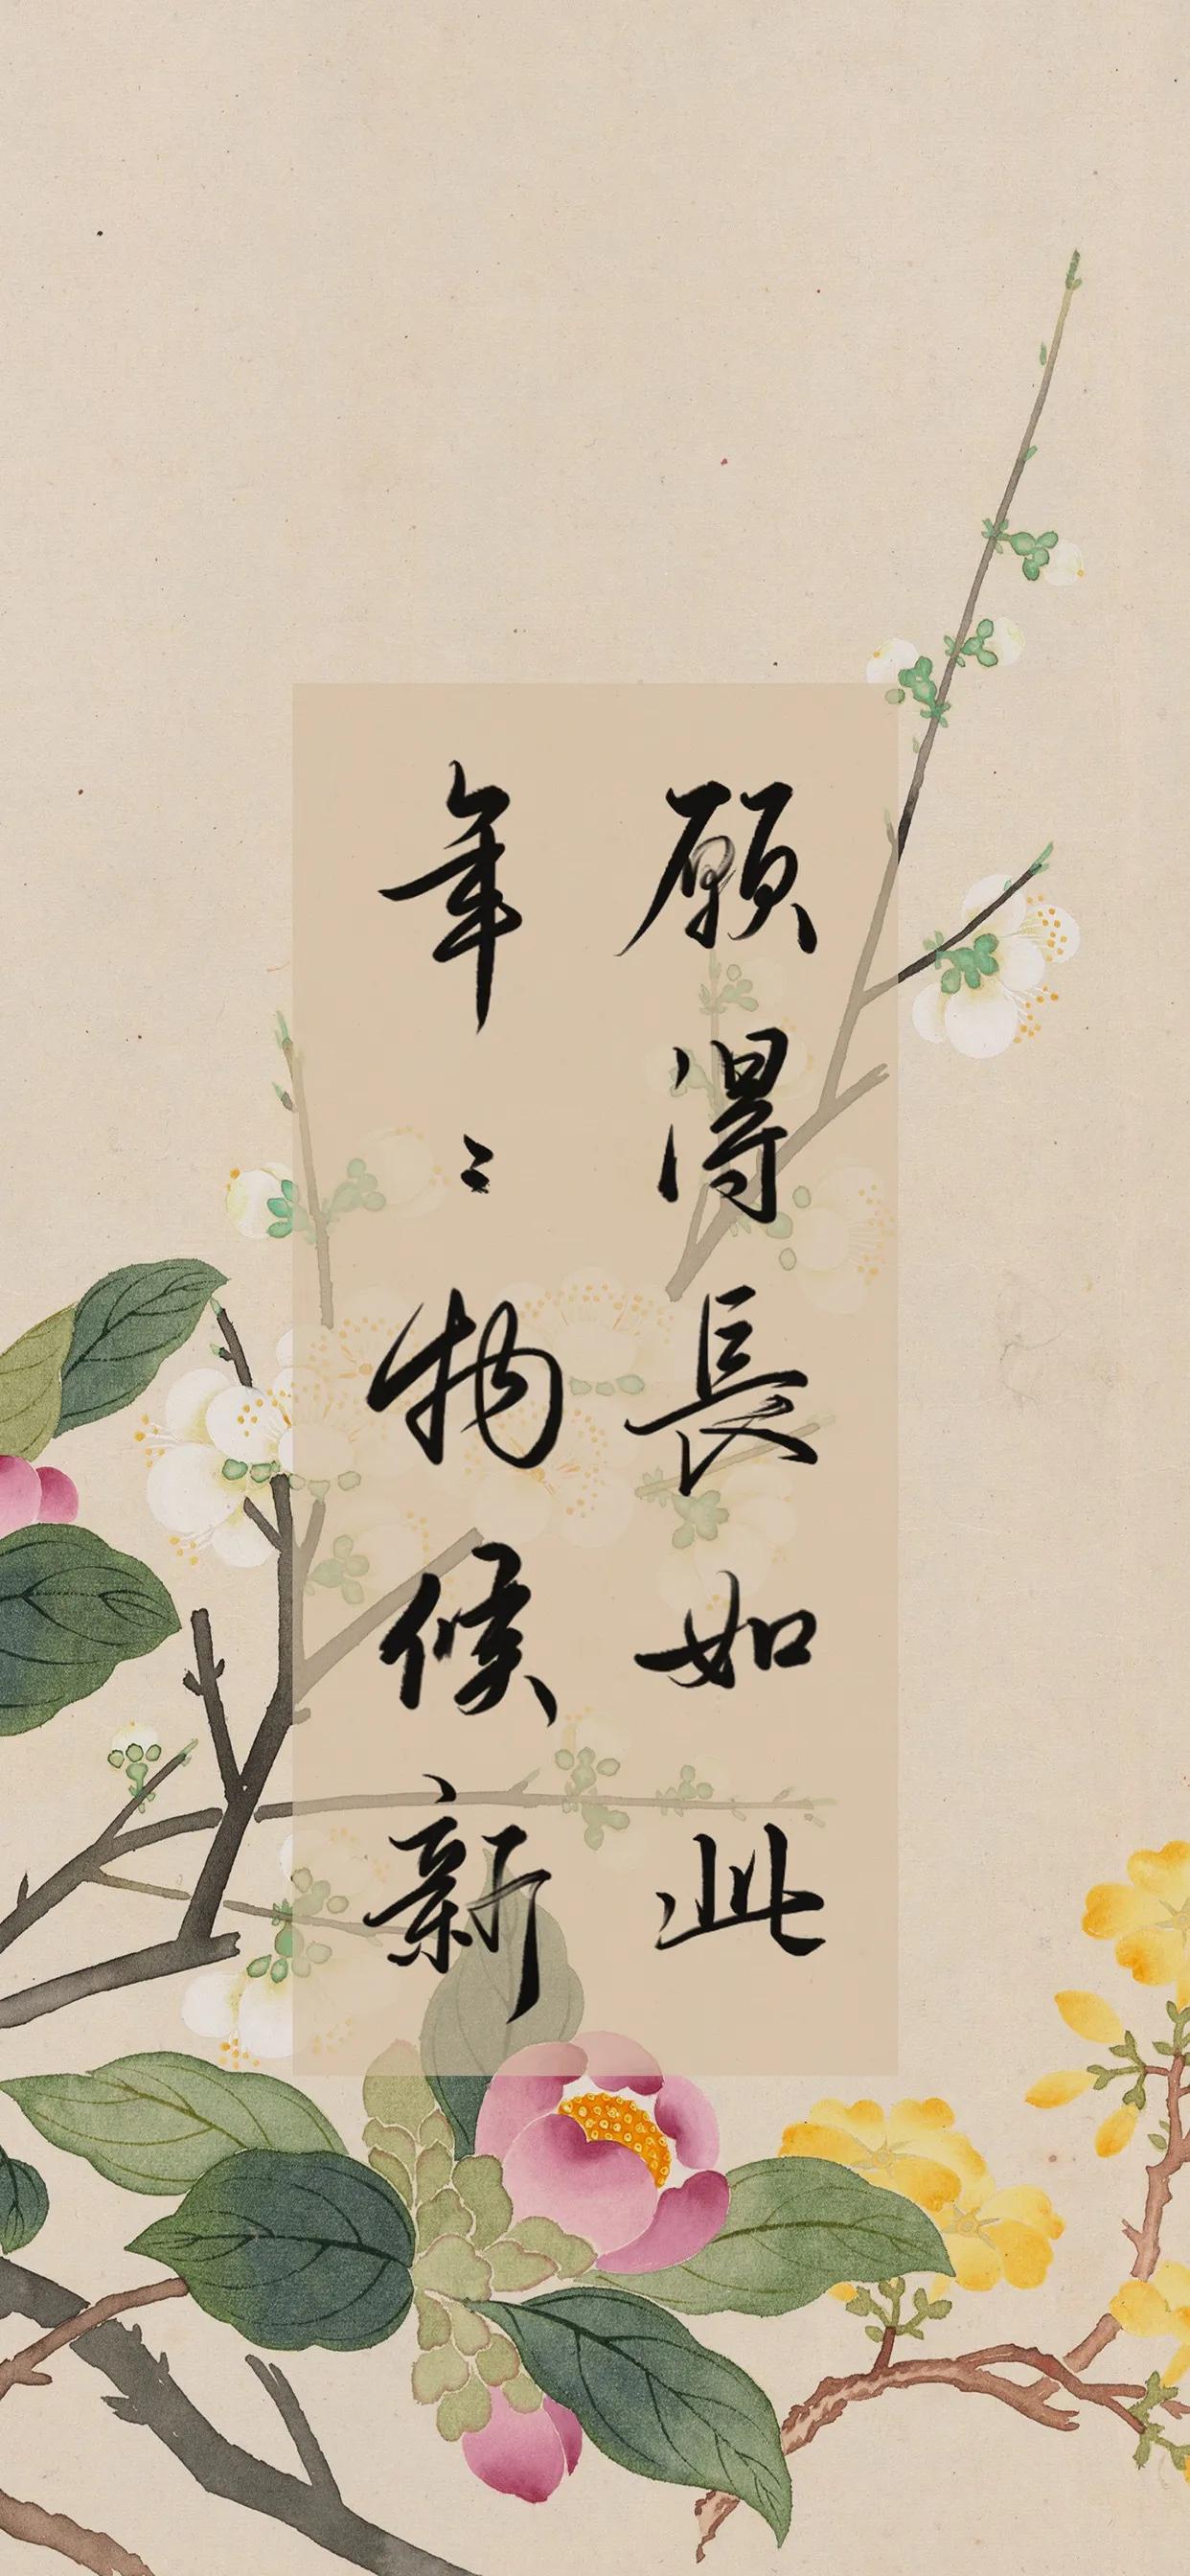 願得長如此
年〻物候新